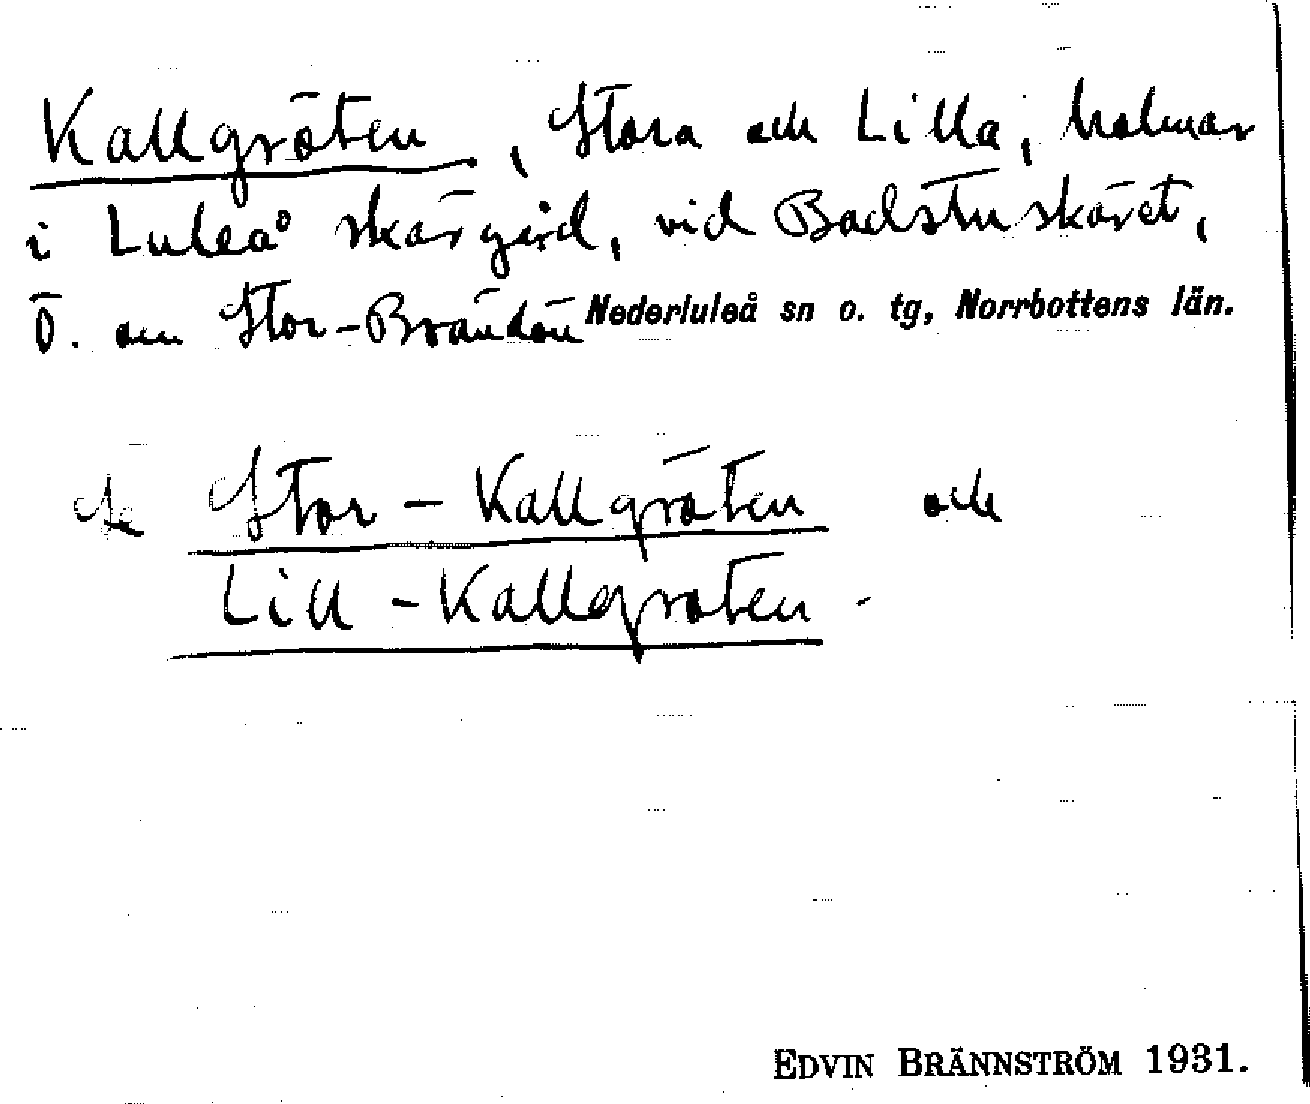 Kallgröten, Stora och Lilla, holmar
i Luleå skärgård, vid Badstuskäret,
Ö. om Stor-Brändön Nederluleå sn o. tg, Norrbottens län.
Se Stor-Kallgröten och
Lill-Kallgröten.
EDVIN BRÄNNSTRÖM 1931.